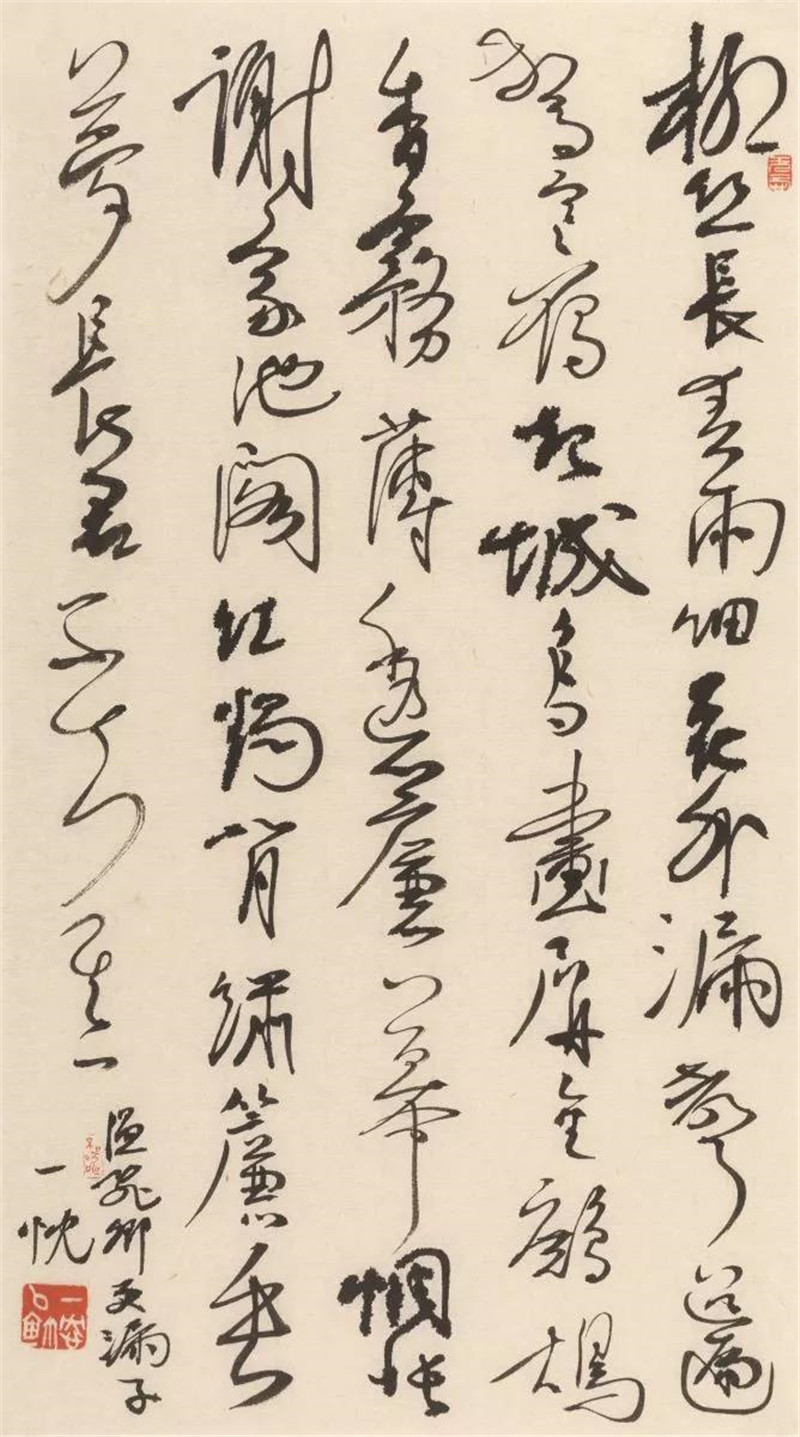 柳丝長春雨细花外漏聲迢遞
驚塞雁起城烏畫屏金鷓鴣
香霧薄透簾幕惆悵
謝家池阁红燭背繡簾垂
夢長君不知其二
温飛卿更漏子
一忱